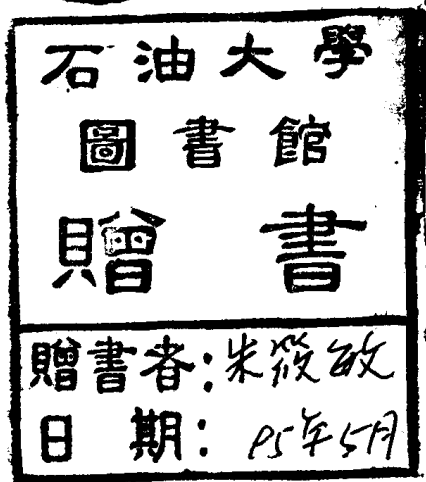 石油大學
圖書館
贈書
贈書者：朱筱敏
日期：95年5月